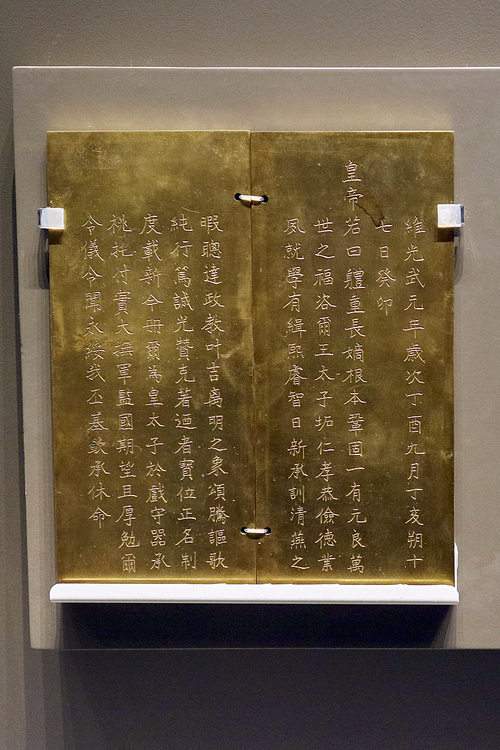 維光武元年歲次丁酉九月丁亥朔十
七日癸卯
皇帝若曰軆重長嫡根本鞏固一有元良萬
世之福洛爾王太子坧仁孝恭儉德業
夙就學有緝熙睿智日新承訓清燕之
暇聰達政教叶吉离明之象頌騰謳歌
純行篤誠光贊克著迺者寶位正名制
度載新今冊爾爲皇太子於戱守器承
祧托付實大撫軍監國期望且厚勉爾
令儀令聞永綏我丕基欽承休命